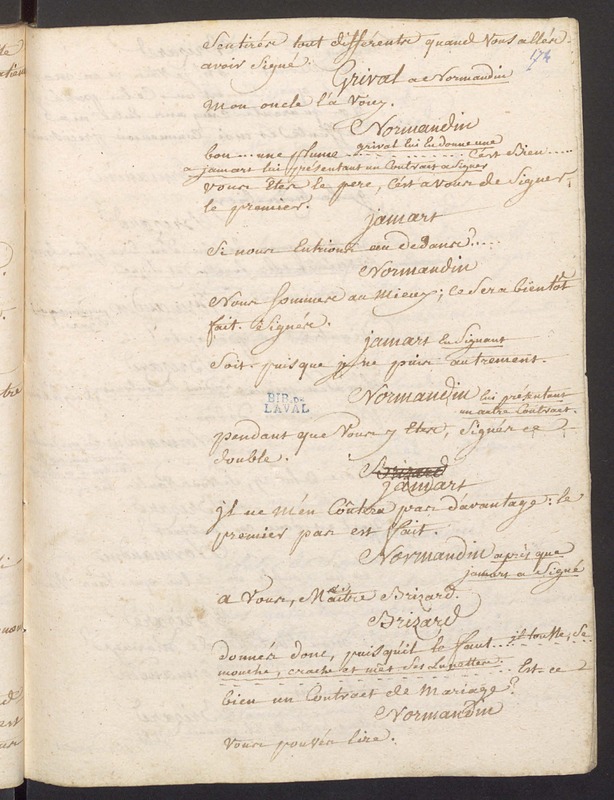 Sentirés tout différents quand Vous allés
avoir Signé.
174
Grival a Normandin
mon oncle l'a Voüé.
Normandin
bon... une plume
grival lui en donne une
C'est Bien.....
a jamart lui présentant un Contract a signer
vous êtes le pere, C'est a vous de Signer
le premier.
jamart
Si nous Entrions au dedans?....
Normandin
Nous Sommes au Mieux; Ce Sera bientôt
fait. Signés.
jamart En Signant
Soit. puisque je ne puis autrement.
Normandin lui présentant
un autre Contract.
BIB. DE
LAVAL
pendant que Vous y Etes, Signés Ce
double.
Brizard
jamart
jl ne m'en Coûtera pas d'avantage: le
premier pas est fait.
Normandin après que
jamart a Signé
a Vous, Maître Brizard.
Brizard
donnés donc, puisqu'il le faut... il tousse, Se
mouche, crache et met Ses Lunettes... Est-ce
bien un Contract de Mariage?
Normandin
Vous pouvés lire.